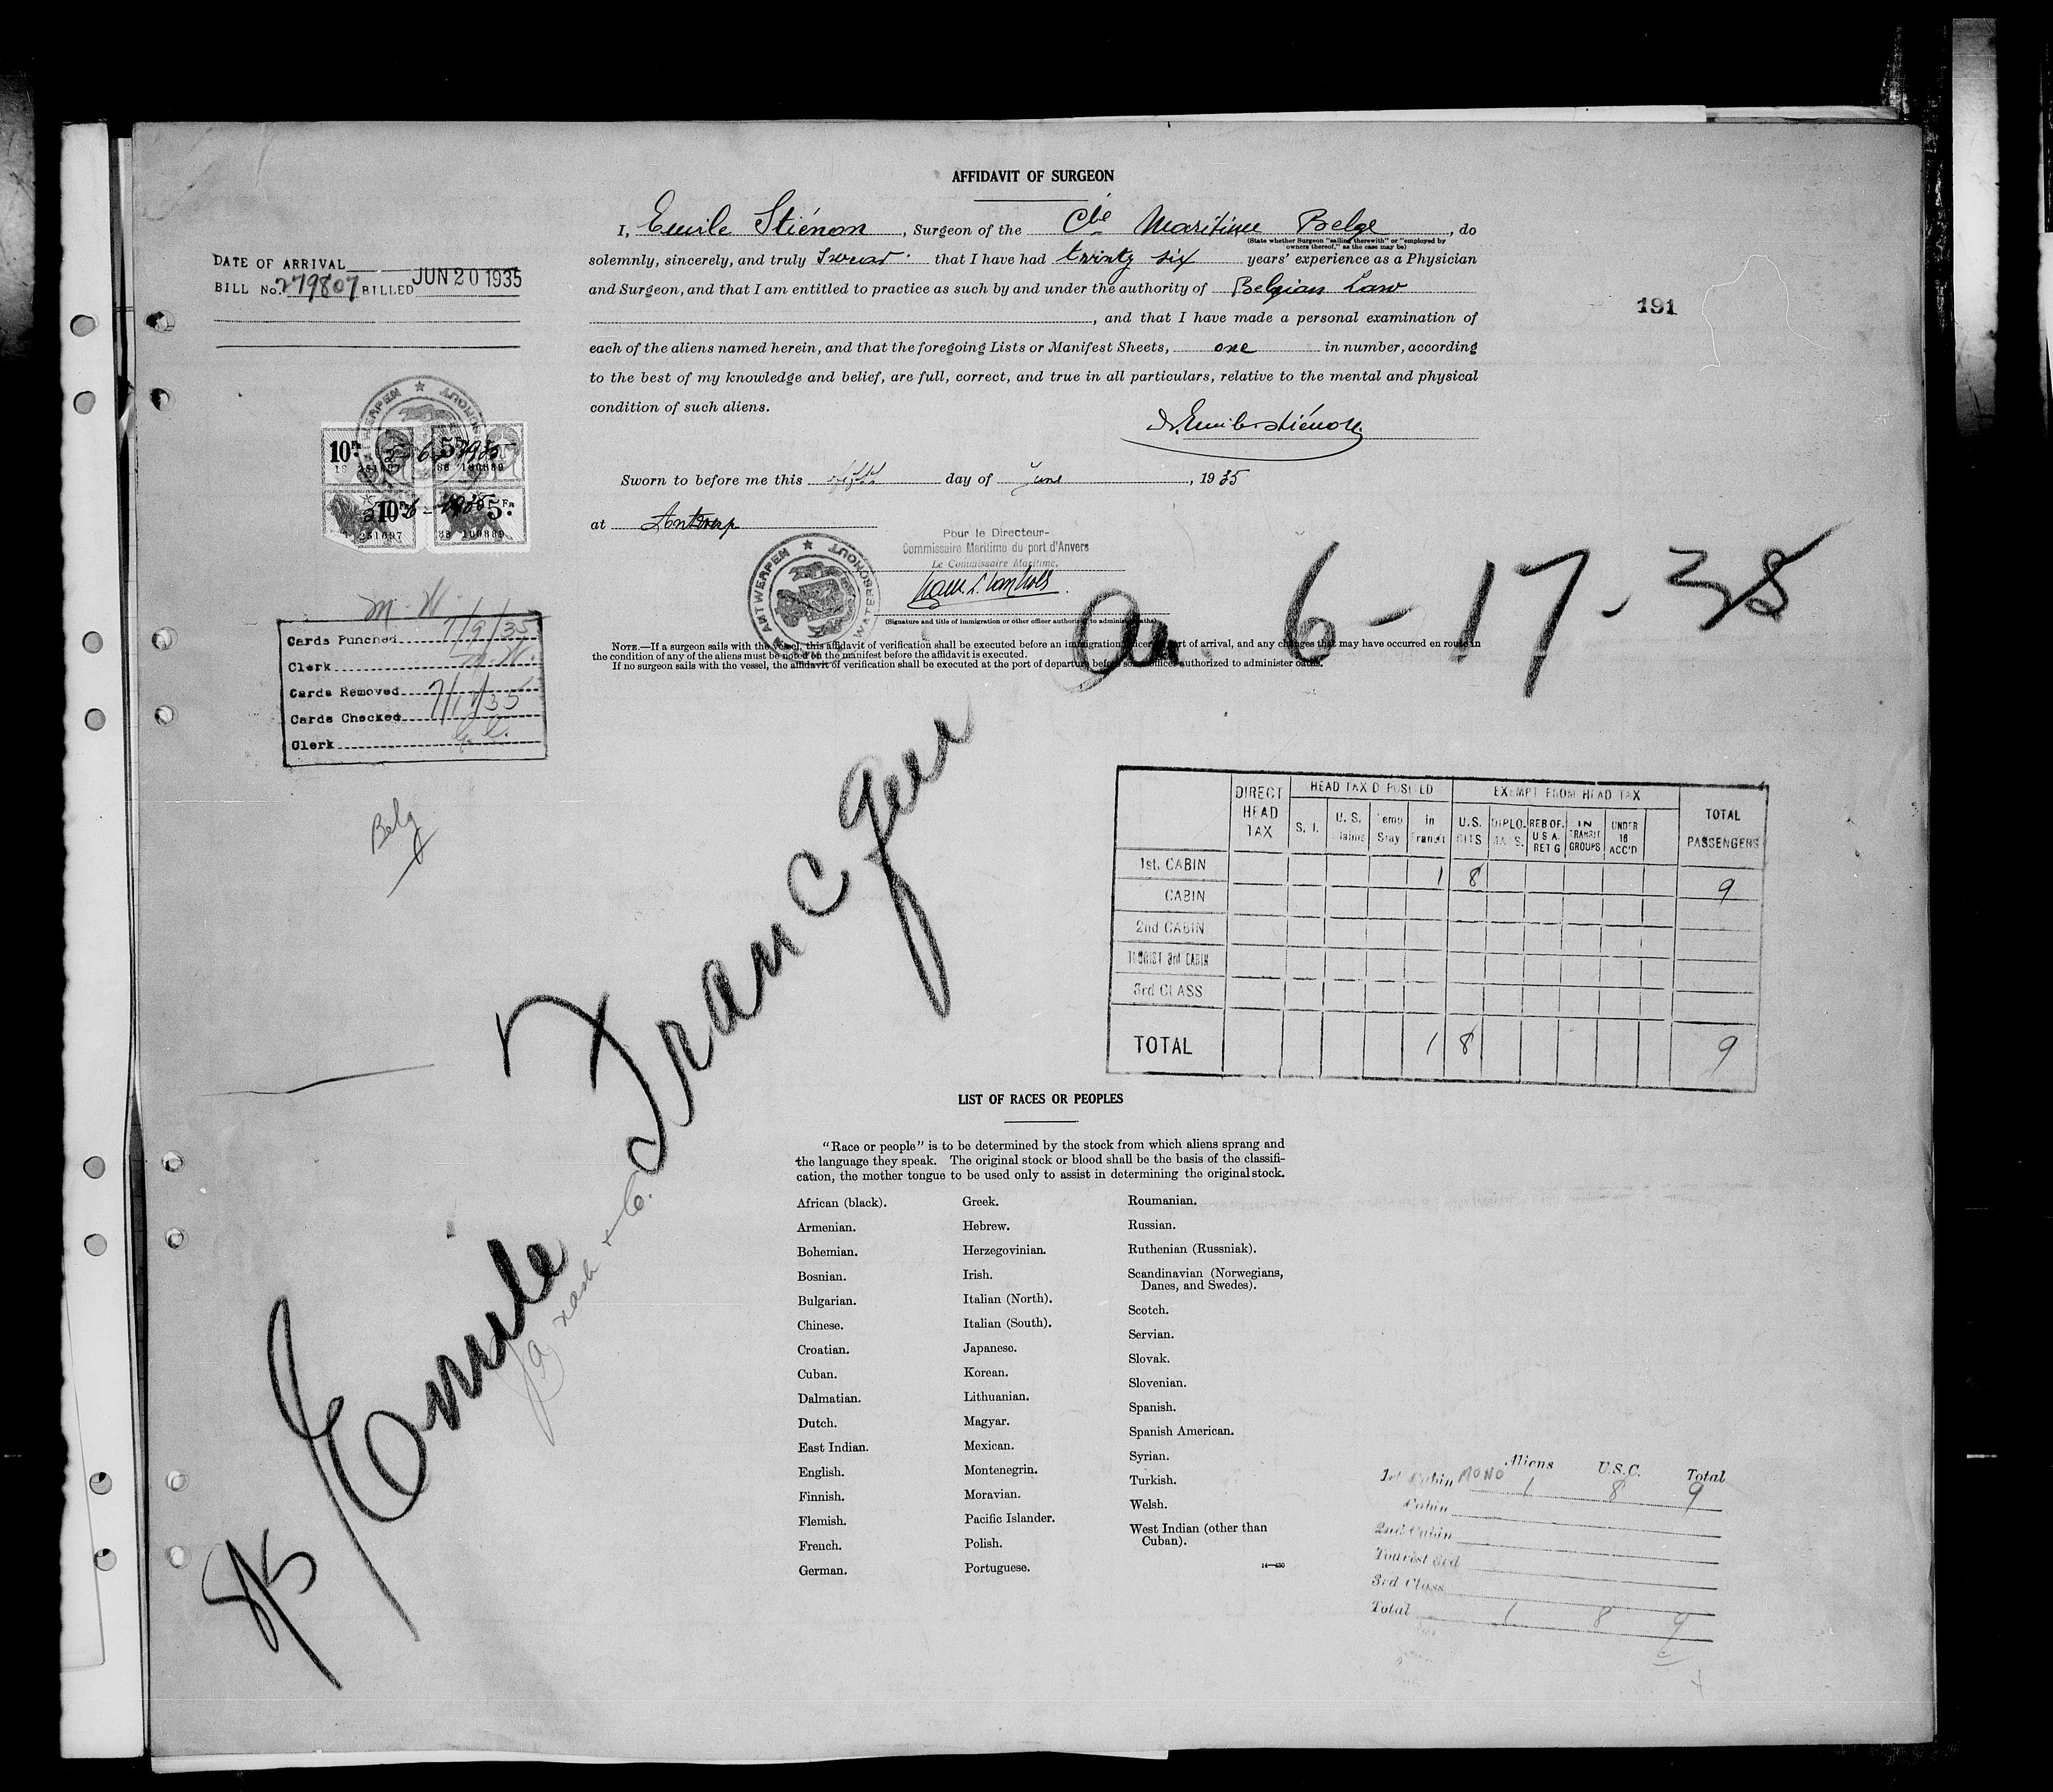 AFFIDAVIT OF SURGEON
I, Emile Stiénon, Surgeon of the Cie Maritime Belge, do
(State whether Surgeon "sailing therewith" or "employed by
owners thereof," as the case may be)
solemnly, sincerely, and truly swear that I have had twinty six years' experience as a Physician
and Surgeon, and that I am entitled to practice as such by and under the authority of Belgian Law
, and that I have made a personal examination of
each of the aliens named herein, and that the foregoing Lists or Manifest Sheets, one in number, according
to the best of my knowledge and belief, are full, correct, and true in all particulars, relative to the mental and physical
condition of such aliens.
Dr. Emile Stiénon
Sworn to before me this fifth day of June, 1935
at Antwerp
Pour le Directeur-
Commissaire Maritime du port d'Anvers
Le Commissaire Maritime,
ANTWERPEN WATERSCHOUT
(Signature and title of immigration or other officer authorized to administer oaths)
NOTE.—If a surgeon sails with the vessel, this affidavit of verification shall be executed before an immigration officer at port of arrival, and any changes that may have occurred en route in
the condition of any of the aliens must be noted on the manifest before the affidavit is executed.
If no surgeon sails with the vessel, the affidavit of verification shall be executed at the port of departure before some officer authorized to administer oaths.
DATE OF ARRIVAL
BILL No. 279807 BILLED JUN 20 1935
191
ANTWERPEN WATERSCHOUT
10 Fr 5 Fr
5-6-1935
10 Fr 5 Fr
5-6-1935
Arr. 6-17-35
M. W.
Cards Punched 7/9/35
Clerk M. W.
Cards Removed
Cards Checked 7/17/35
Clerk
Belg
S/S Emile Francqui
DIRECT HEAD TAX
HEAD TAX DEPOSITED
EXEMPT FROM HEAD TAX
TOTAL PASSENGERS
S. I. U. S. Claims Temp Stay In Transit U.S. CITS DIPLOMATS. REB OF. U S A. RET G IN TRANSIT GROUPS UNDER 16 ACC'D
1st. CABIN 1 8 9
CABIN
2nd CABIN
TOURIST 3rd CABIN
3rd CLASS
TOTAL 1 8 9
LIST OF RACES OR PEOPLES
"Race or people" is to be determined by the stock from which aliens sprang and
the language they speak. The original stock or blood shall be the basis of the classifi-
cation, the mother tongue to be used only to assist in determining the original stock.
African (black).
Armenian.
Bohemian.
Bosnian.
Bulgarian.
Chinese.
Croatian.
Cuban.
Dalmatian.
Dutch.
East Indian.
English.
Finnish.
Flemish.
French.
German.
Greek.
Hebrew.
Herzegovinian.
Irish.
Italian (North).
Italian (South).
Japanese.
Korean.
Lithuanian.
Magyar.
Mexican.
Montenegrin.
Moravian.
Pacific Islander.
Polish.
Portuguese.
Roumanian.
Russian.
Ruthenian (Russniak).
Scandinavian (Norwegians,
Danes, and Swedes).
Scotch.
Servian.
Slovak.
Slovenian.
Spanish.
Spanish American.
Syrian.
Turkish.
Welsh.
West Indian (other than
Cuban).
14—430
Aliens U.S.C. Total
1st Cabin MONO 1 8 9
Cabin
2nd Cabin
Tourist 3rd
3rd Class
Total 1 8 9